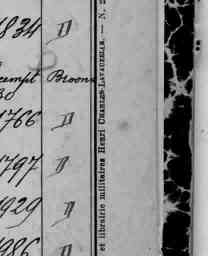 1834 D
exempt Broons
30
1766 D
1797 D
1929 D
1986 D
et librairie militaires Henri CHARLES-LAVAUZELLE. — N. 2